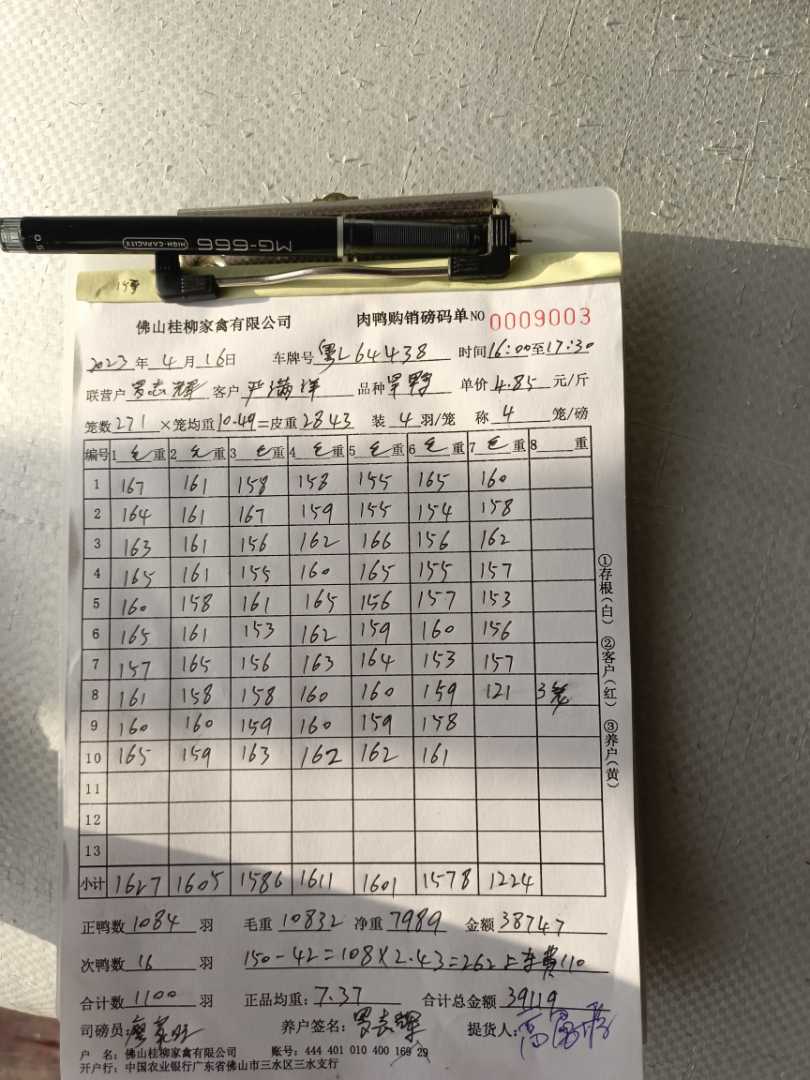 MG-666 HIGH-CAPACITY
佛山桂柳家禽有限公司 肉鸭购销磅码单NO 0009003
2023年4月16日 车牌号粤L64438 时间16:00至17:30
联营户罗志辉 客户严满洋 品种 单价4.85元/斤
笼数271×笼均重10.49=皮重2843 装4羽/笼 称4笼/磅
编号 1毛重 2毛重 3毛重 4毛重 5毛重 6毛重 7毛重 8重
1 167 161 158 158 155 165 160
2 164 161 167 159 155 154 158
3 163 161 156 162 166 156 162
4 165 161 155 160 165 155 157
5 160 158 161 165 156 157 153
6 165 161 153 162 159 160 156
7 157 165 156 163 164 153 157
8 161 158 158 160 160 159 121 3笼
9 160 160 159 160 159 158
10 165 159 163 162 162 161
11
12
13
小计 1627 1605 1586 1611 1601 1578 1224
①存根(白) ②客户(红) ③养户(黄)
正鸭数1084羽 毛重10832 净重7989 金额38747
次鸭数16羽 150-42=108×2.43=262上车费110
合计数1100羽 正品均重:7.37 合计总金额39119
司磅员: 养户签名:罗志辉 提货人:
户 名:佛山桂柳家禽有限公司 账号:444 401 010 400 169 29
开户行:中国农业银行广东省佛山市三水区三水支行